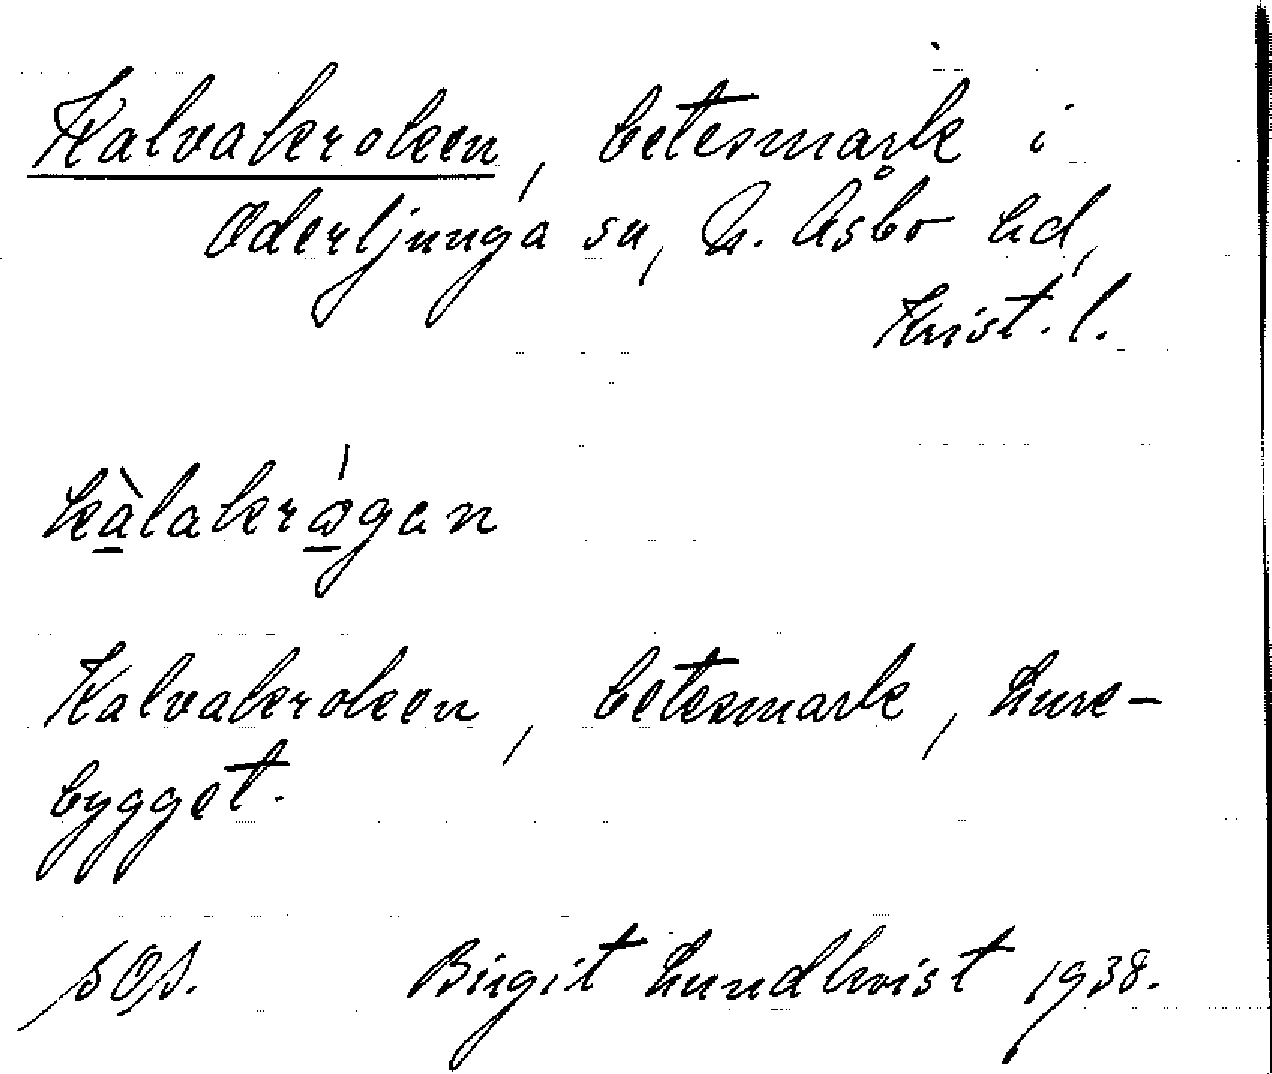 Kalvakroken, betesmark i
Oderljunga sn, N. Åsbo hd,
Krist. l.
kàlakrǻgan
Kalvakroken, betesmark, Lure-
bygget.
Birgit Lundkvist 1938.